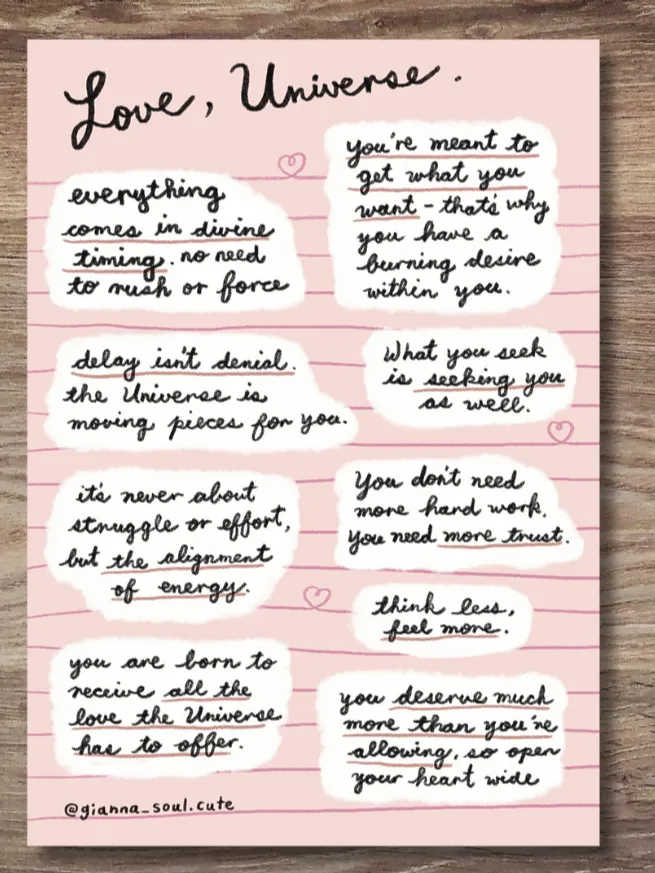 Love, Universe.
everything
comes in divine
timing. no need
to rush or force
you're meant to
get what you
want - that's why
you have a
burning desire
within you.
delay isn't denial.
the Universe is
moving pieces for you.
What you seek
is seeking you
as well.
it's never about
struggle or effort,
but the alignment
of energy.
You don't need
more hard work.
You need more trust.
think less,
feel more.
you are born to
receive all the
love the Universe
has to offer.
you deserve much
more than you're
allowing, so open
your heart wide
@gianna_soul.cute